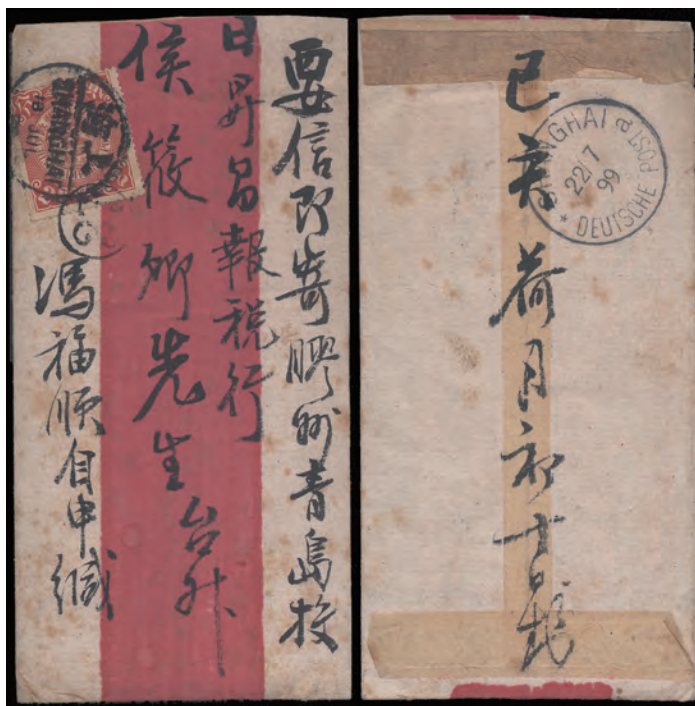 要信即寄膠州青島投
日昇昌報稅行
侯筱卿先生台升
馮福順自申緘
上海
SHANGHAI
JUL
己亥荷月初十日托
SHANGHAI a
22/7
99
* DEUTSCHE POST